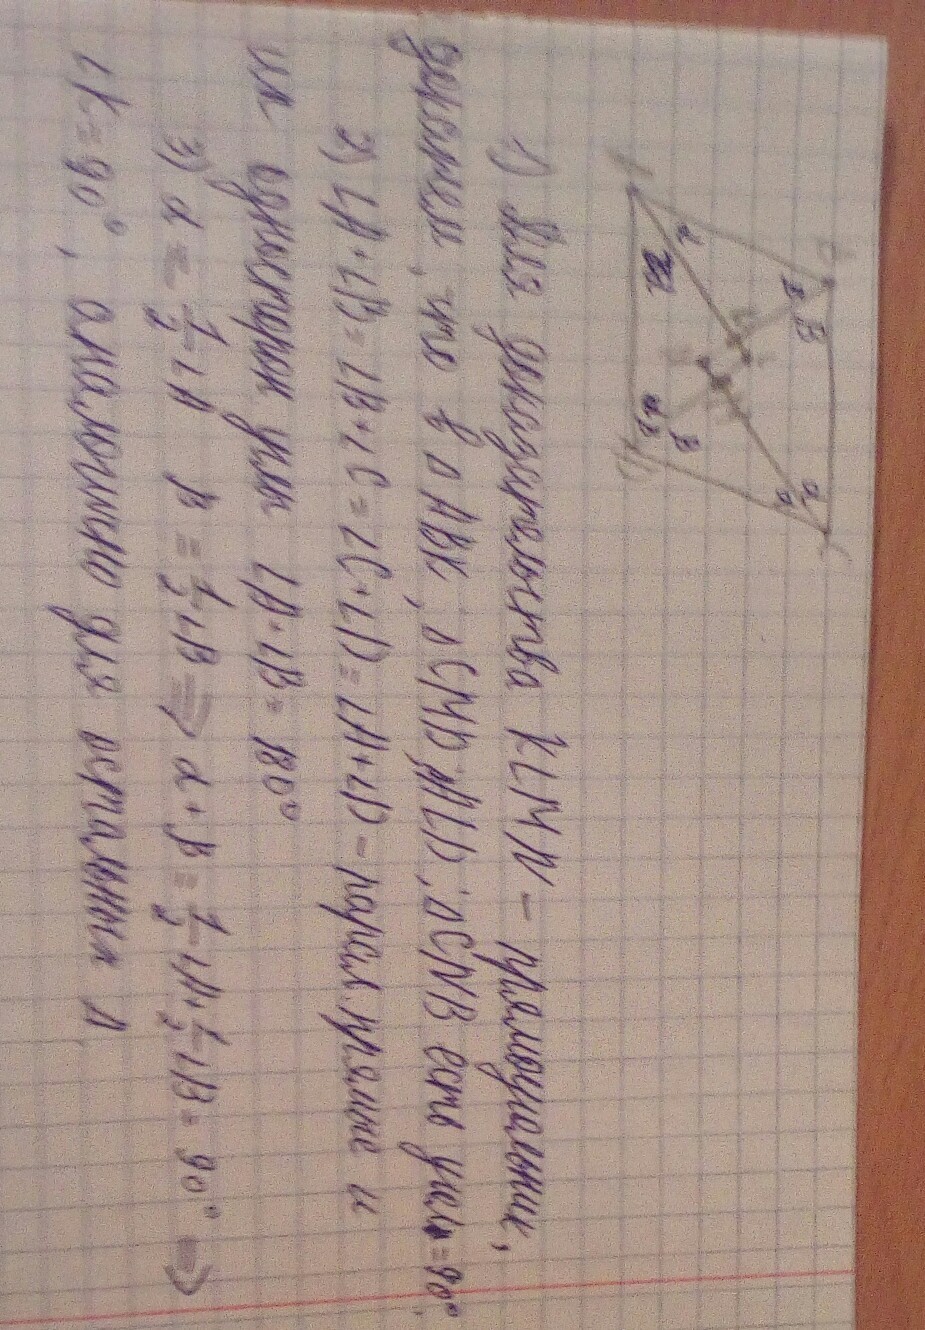 1) Для доказательства KLMN - прямоугольник,
докажем, что в △ ABK, △ CMD, △CNB есть угол = 90°,
2) ∠A+∠B= ∠B+∠C = ∠C+∠D= ∠A+∠D - парал. прямые и
их односторон углы ∠A+∠B= 180°
3) α = 1/2 ∠A β = 1/2 ∠B => α+β = 1/2 ∠A+1/2 ∠B = 90° =>
∠K=90°, аналогично для остальных △